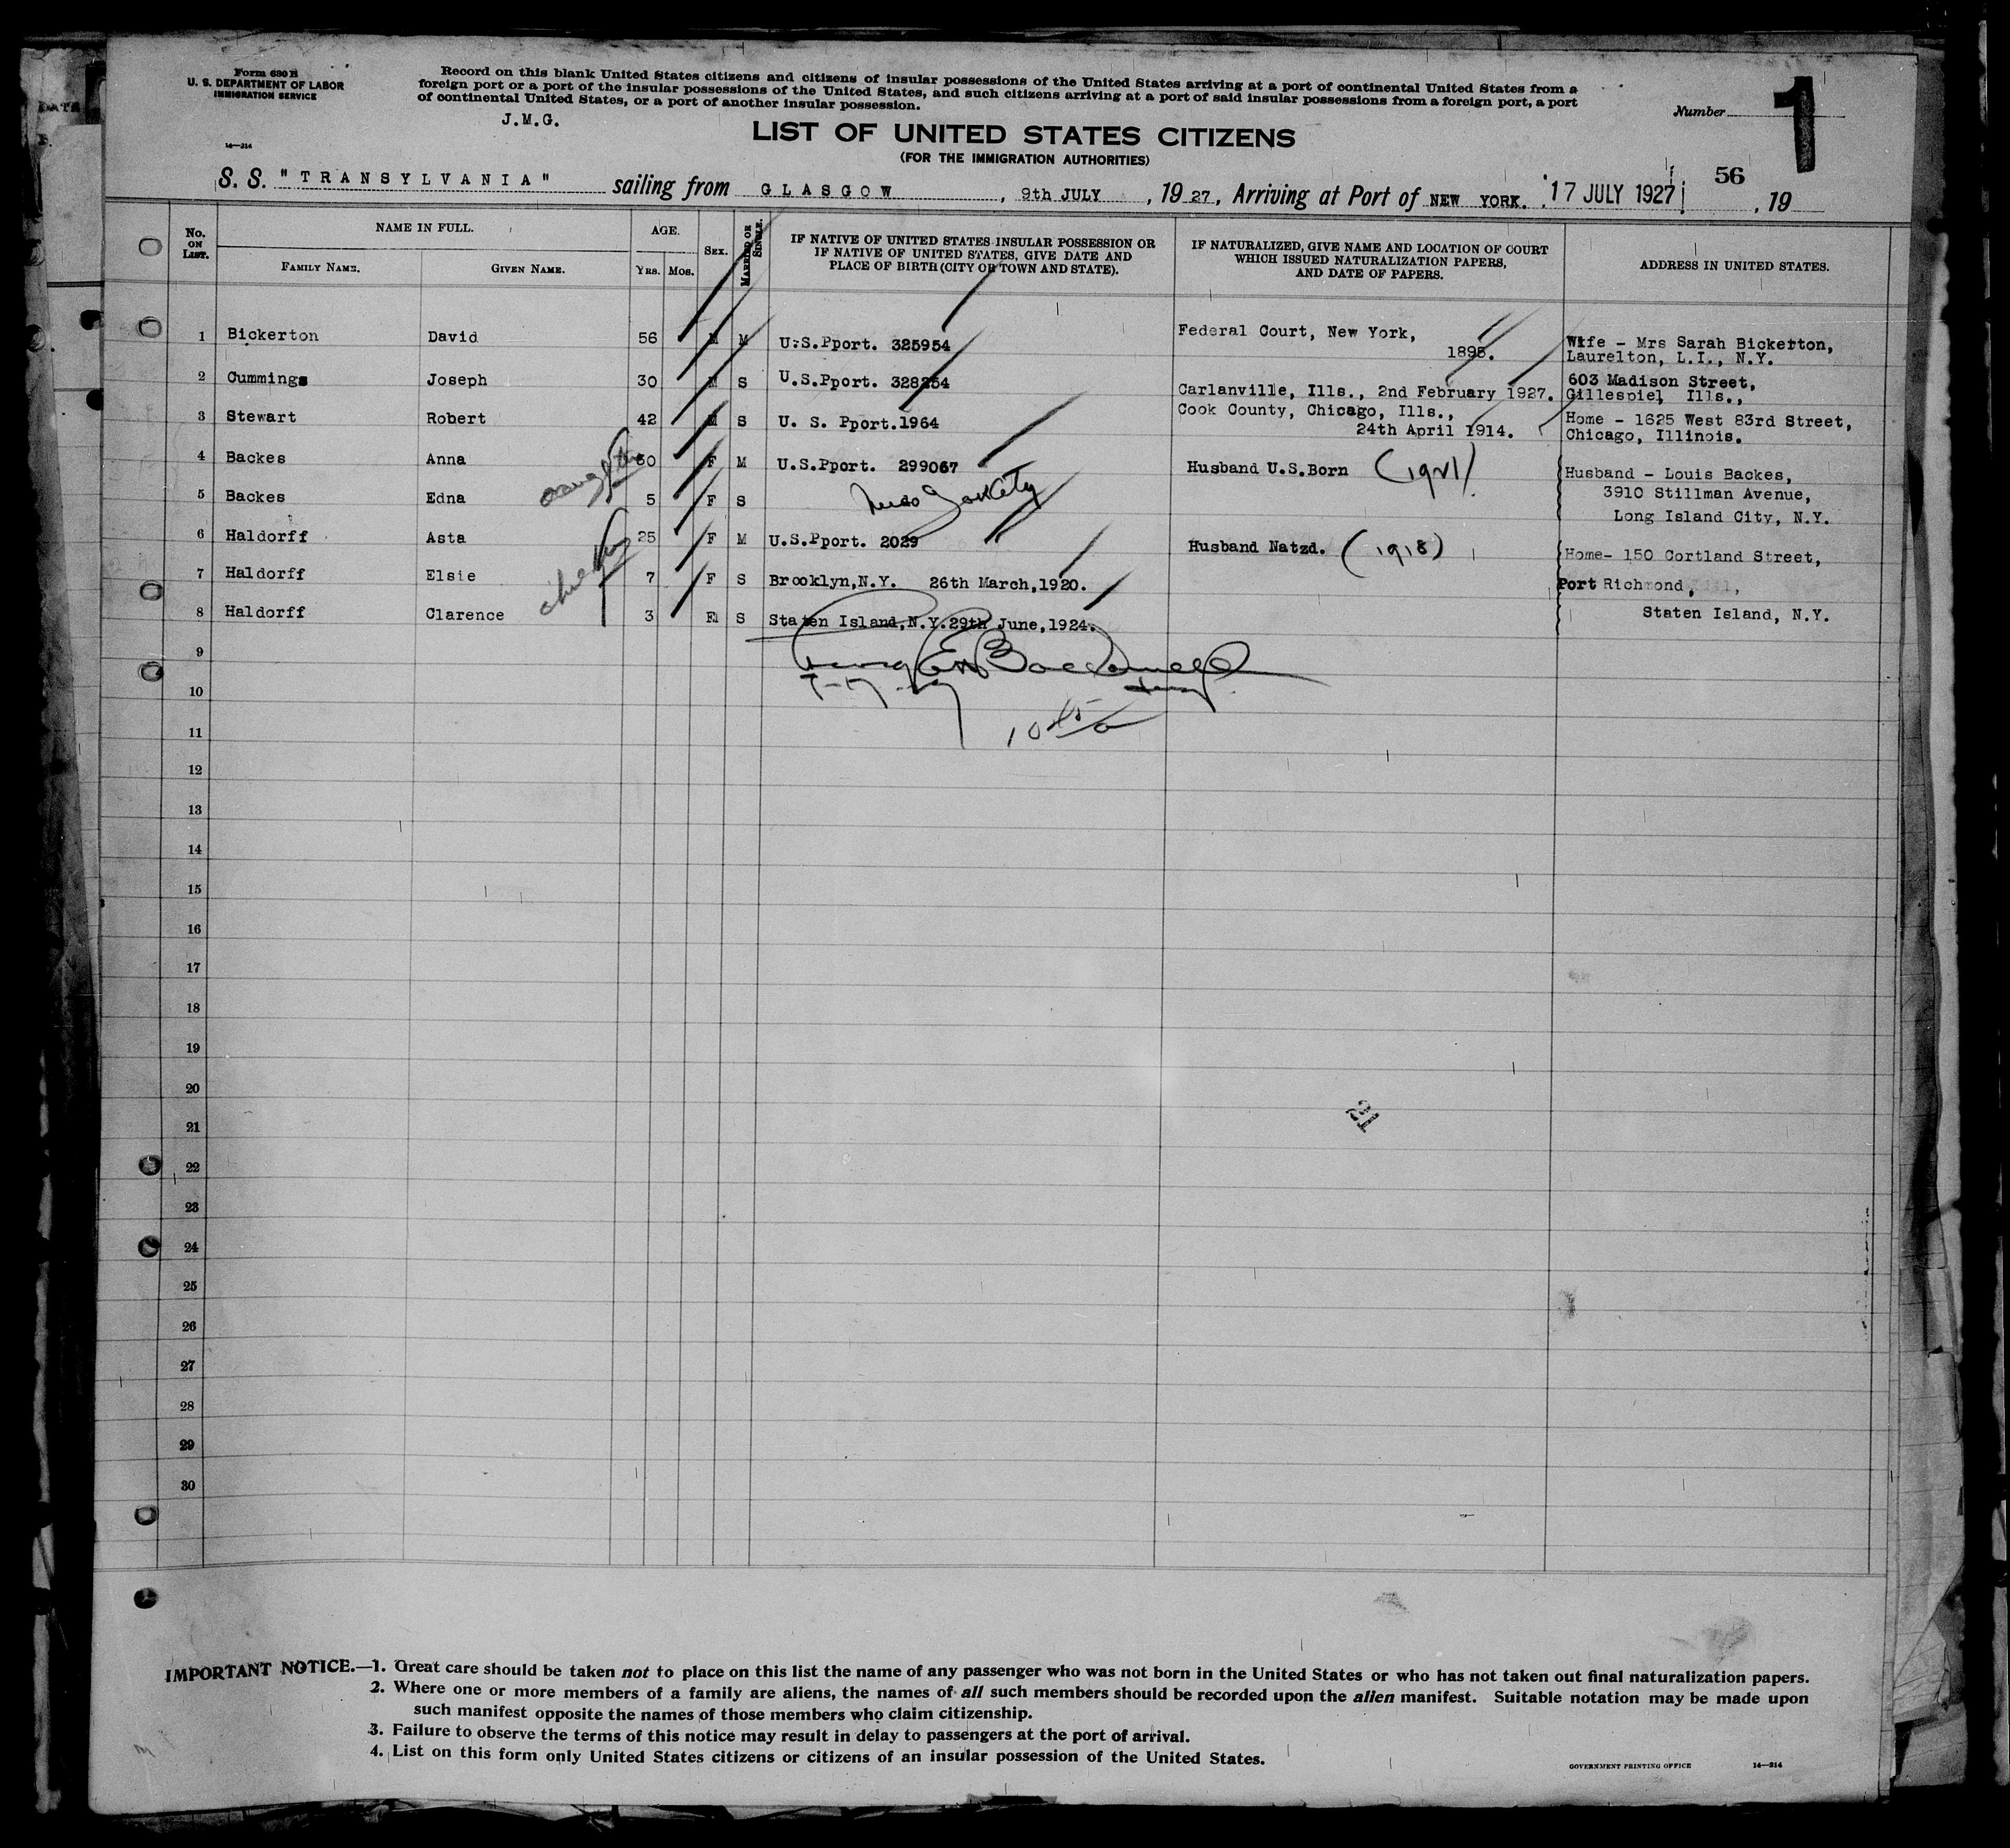 Form 630 B
U. S. DEPARTMENT OF LABOR
IMMIGRATION SERVICE
14—214
Record on this blank United States citizens and citizens of insular possessions of the United States arriving at a port of continental United States from a
foreign port or a port of the insular possessions of the United States, and such citizens arriving at a port of said insular possessions from a foreign port, a port
of continental United States, or a port of another insular possession.
J.M.G.
Number 1
LIST OF UNITED STATES CITIZENS
(FOR THE IMMIGRATION AUTHORITIES)
56
S. S. "TRANSYLVANIA" sailing from GLASGOW, 9th JULY, 1927, Arriving at Port of NEW YORK. 17 JULY 1927, 19
No. ON LIST. NAME IN FULL. AGE. SEX. MARRIED OR SINGLE. IF NATIVE OF UNITED STATES INSULAR POSSESSION OR IF NATIVE OF UNITED STATES, GIVE DATE AND PLACE OF BIRTH (CITY OR TOWN AND STATE). IF NATURALIZED, GIVE NAME AND LOCATION OF COURT WHICH ISSUED NATURALIZATION PAPERS, AND DATE OF PAPERS. ADDRESS IN UNITED STATES.
FAMILY NAME. GIVEN NAME. YRS. MOS.
1 Bickerton David 56 M M U.S.Pport. 325954 Federal Court, New York, 1895. Wife - Mrs Sarah Bickerton,
Laurelton, L.I., N.Y.
2 Cummings Joseph 30 M S U.S.Pport. 328254 Carlanville, Ills., 2nd February 1927. 603 Madison Street,
Gillespiel, Ills.,
3 Stewart Robert 42 M S U. S. Pport.1964 Cook County, Chicago, Ills., 24th April 1914. Home - 1625 West 83rd Street,
Chicago, Illinois.
4 Backes Anna 30 F M U.S.Pport. 299067 Husband U.S.Born (1921) Husband - Louis Backes,
daughter
5 Backes Edna 5 F S 3910 Stillman Avenue,
Long Island City, N.Y.
6 Haldorff Asta 25 F M U.S.Pport. 2029 Husband Natzd. (1918) Home- 150 Cortland Street,
7 Haldorff Elsie 7 F S Brooklyn,N.Y. 26th March,1920. Port Richmond,
8 Haldorff Clarence 3 S Staten Island,N.Y.29th June,1924. Staten Island, N.Y.
9
10
11
12
13
14
15
16
17
18
19
20
21
21
22
23
24
25
26
27
28
29
30
IMPORTANT NOTICE.—1. Great care should be taken not to place on this list the name of any passenger who was not born in the United States or who has not taken out final naturalization papers.
2. Where one or more members of a family are aliens, the names of all such members should be recorded upon the alien manifest. Suitable notation may be made upon
such manifest opposite the names of those members who claim citizenship.
3. Failure to observe the terms of this notice may result in delay to passengers at the port of arrival.
4. List on this form only United States citizens or citizens of an insular possession of the United States.
GOVERNMENT PRINTING OFFICE 14—214